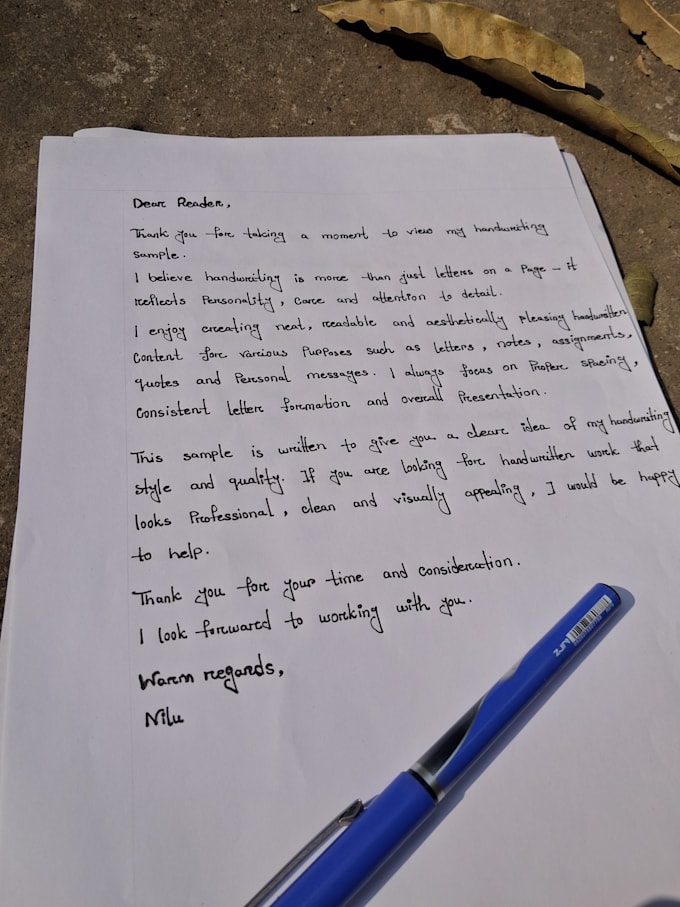 Dear Reader,
Thank you for taking a moment to view my handwriting
sample.
I believe handwriting is more than just letters on a Page - it
reflects Personality, care and attention to detail.
I enjoy creating neat, readable and aesthetically Pleasing handwritten
Content for various Purposes such as letters, notes, assignments,
quotes and Personal messages. I always focus on Proper spacing,
Consistent letter formation and overall Presentation.
This sample is written to give you a clear idea of my handwriting
style and quality. If you are looking for handwritten work that
looks Professional, clean and visually appealing, I would be happy
to help.
Thank you for your time and consideration.
I look forward to working with you.
Warm regards,
Nilu